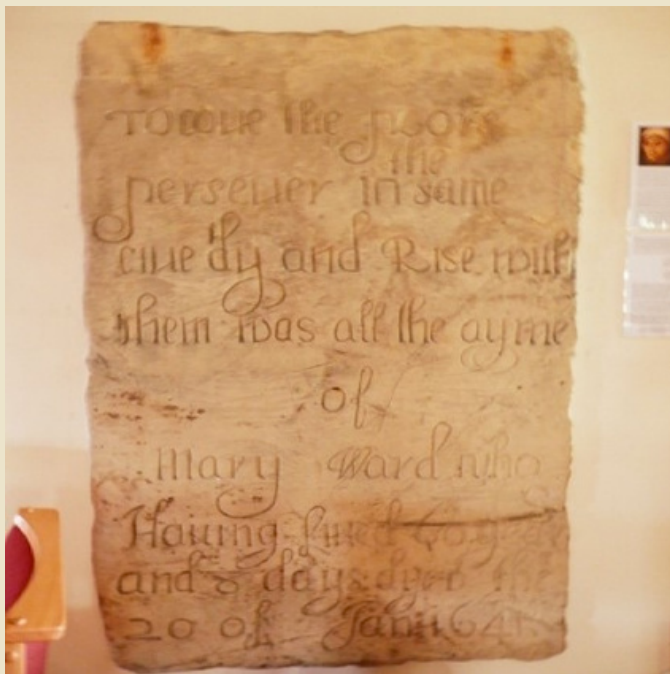 To love the poore
the
persever in same
live dy and Rise with
them was all the ayme
of
Mary Ward who
Having lived 60 years
and 8 days dyed the
20 of Jan 1645